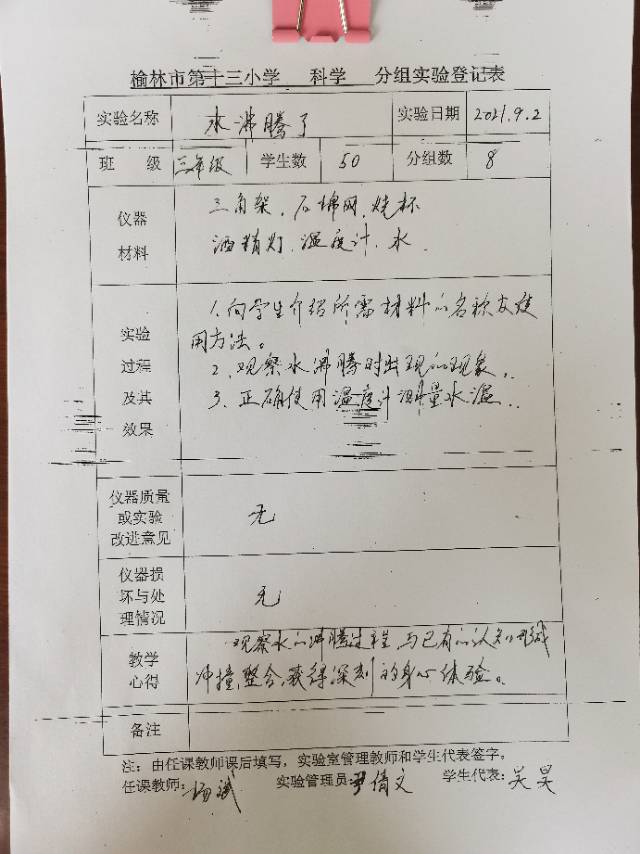 榆林市第十三小学 科学 分组实验登记表
实验名称 水沸腾了 实验日期 2021.9.2
班 级 三年级 学生数 50 分组数 8
仪器
材料
三角架、石棉网、烧杯
酒精灯、温度计、水.
实验
过程
及其
效果
1、向学生介绍所需材料的名称及使
用方法。
2、观察水沸腾时出现的现象。
3、正确使用温度计测量水温.
仪器质量
或实验
改进意见
无
仪器损
坏与处
理情况
无
教学
心得
观察水的沸腾过程,与已有的认知形成
冲撞,整合,获得深刻的身心体验。
备注
注:由任课教师课后填写,实验室管理教师和学生代表签字。
任课教师:杨斌 实验管理员:尹倩文 学生代表:吴昊